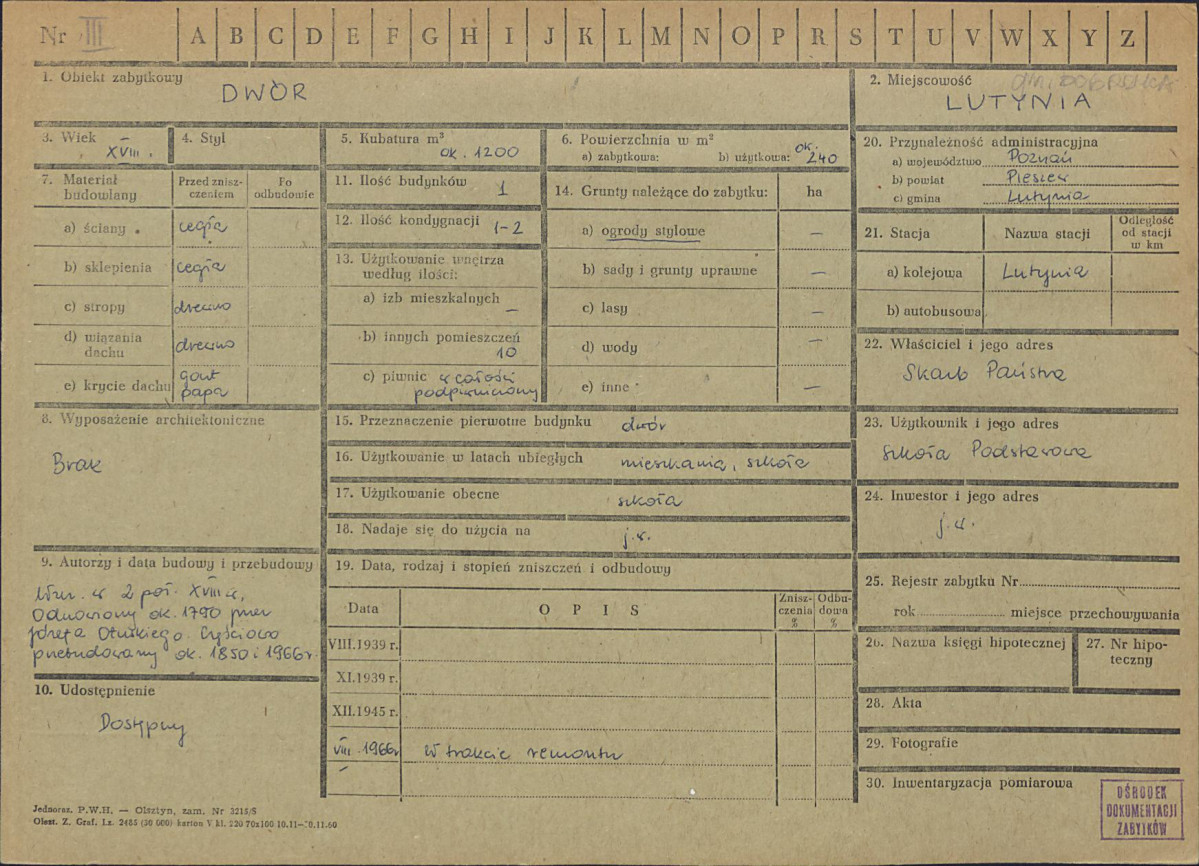 Nr III A B C D E F G H I J K L M N O P R S T U V W X Y Z
1. Obiekt zabytkowy
DWÓR
2. Miejscowość
LUTYNIA
3. Wiek
XVIII.
4. Styl
5. Kubatura m³
ok. 1200
6. Powierzchnia w m²
a) zabytkowa: b) użytkowa: ok. 240
20. Przynależność administracyjna
a) województwo Poznań
b) powiat Pleszew
c) gmina Lutynia
7. Materiał budowlany
Przed znisz-
czeniem
Po
odbudowie
a) ściany cegła
b) sklepienia cegła
c) stropy drewno
d) wiązania
dachu drewno
e) krycie dachu gont
papa
11. Ilość budynków 1
12. Ilość kondygnacji 1-2
13. Użytkowanie wnętrza
według ilości:
a) izb mieszkalnych
—
b) innych pomieszczeń
10
c) piwnic w całości
podpiwniczony
14. Grunty należące do zabytku: ha
a) ogrody stylowe —
b) sady i grunty uprawne —
c) lasy —
d) wody —
e) inne —
21. Stacja
Nazwa stacji
Odległość
od stacji
w km
a) kolejowa Lutynia
b) autobusowa
22. Właściciel i jego adres
Skarb Państwa
8. Wyposażenie architektoniczne
Brak
15. Przeznaczenie pierwotne budynku dwór
16. Użytkowanie w latach ubiegłych mieszkania, szkoła
17. Użytkowanie obecne szkoła
18. Nadaje się do użycia na j.w.
23. Użytkownik i jego adres
Szkoła Podstawowa
24. Inwestor i jego adres
j.w.
9. Autorzy i data budowy i przebudowy
Wzn. w 2 poł. XVIII w,
Odnowiony ok. 1790 przez
Józefa Częściowo
przebudowany ok. 1850 i 1966r.
10. Udostępnienie
Dostępny
19. Data, rodzaj i stopień zniszczeń i odbudowy
Data
OPIS
Znisz-
czenia
%
Odbu-
dowa
%
VIII.1939 r.
XI.1939 r.
XII.1945 r.
VIII.1966r w trakcie remontu
25. Rejestr zabytku Nr
rok miejsce przechowywania
26. Nazwa księgi hipotecznej
27. Nr hipo-
teczny
28. Akta
29. Fotografie
30. Inwentaryzacja pomiarowa
OŚRODEK
DOKUMENTACJI
ZABYTKÓW
Jednoraz. P.W.H. — Olsztyn, zam. Nr 3215/S
Olszt. Z. Graf. Lz. 2485 (30 000) karton V kl. 220 70x100